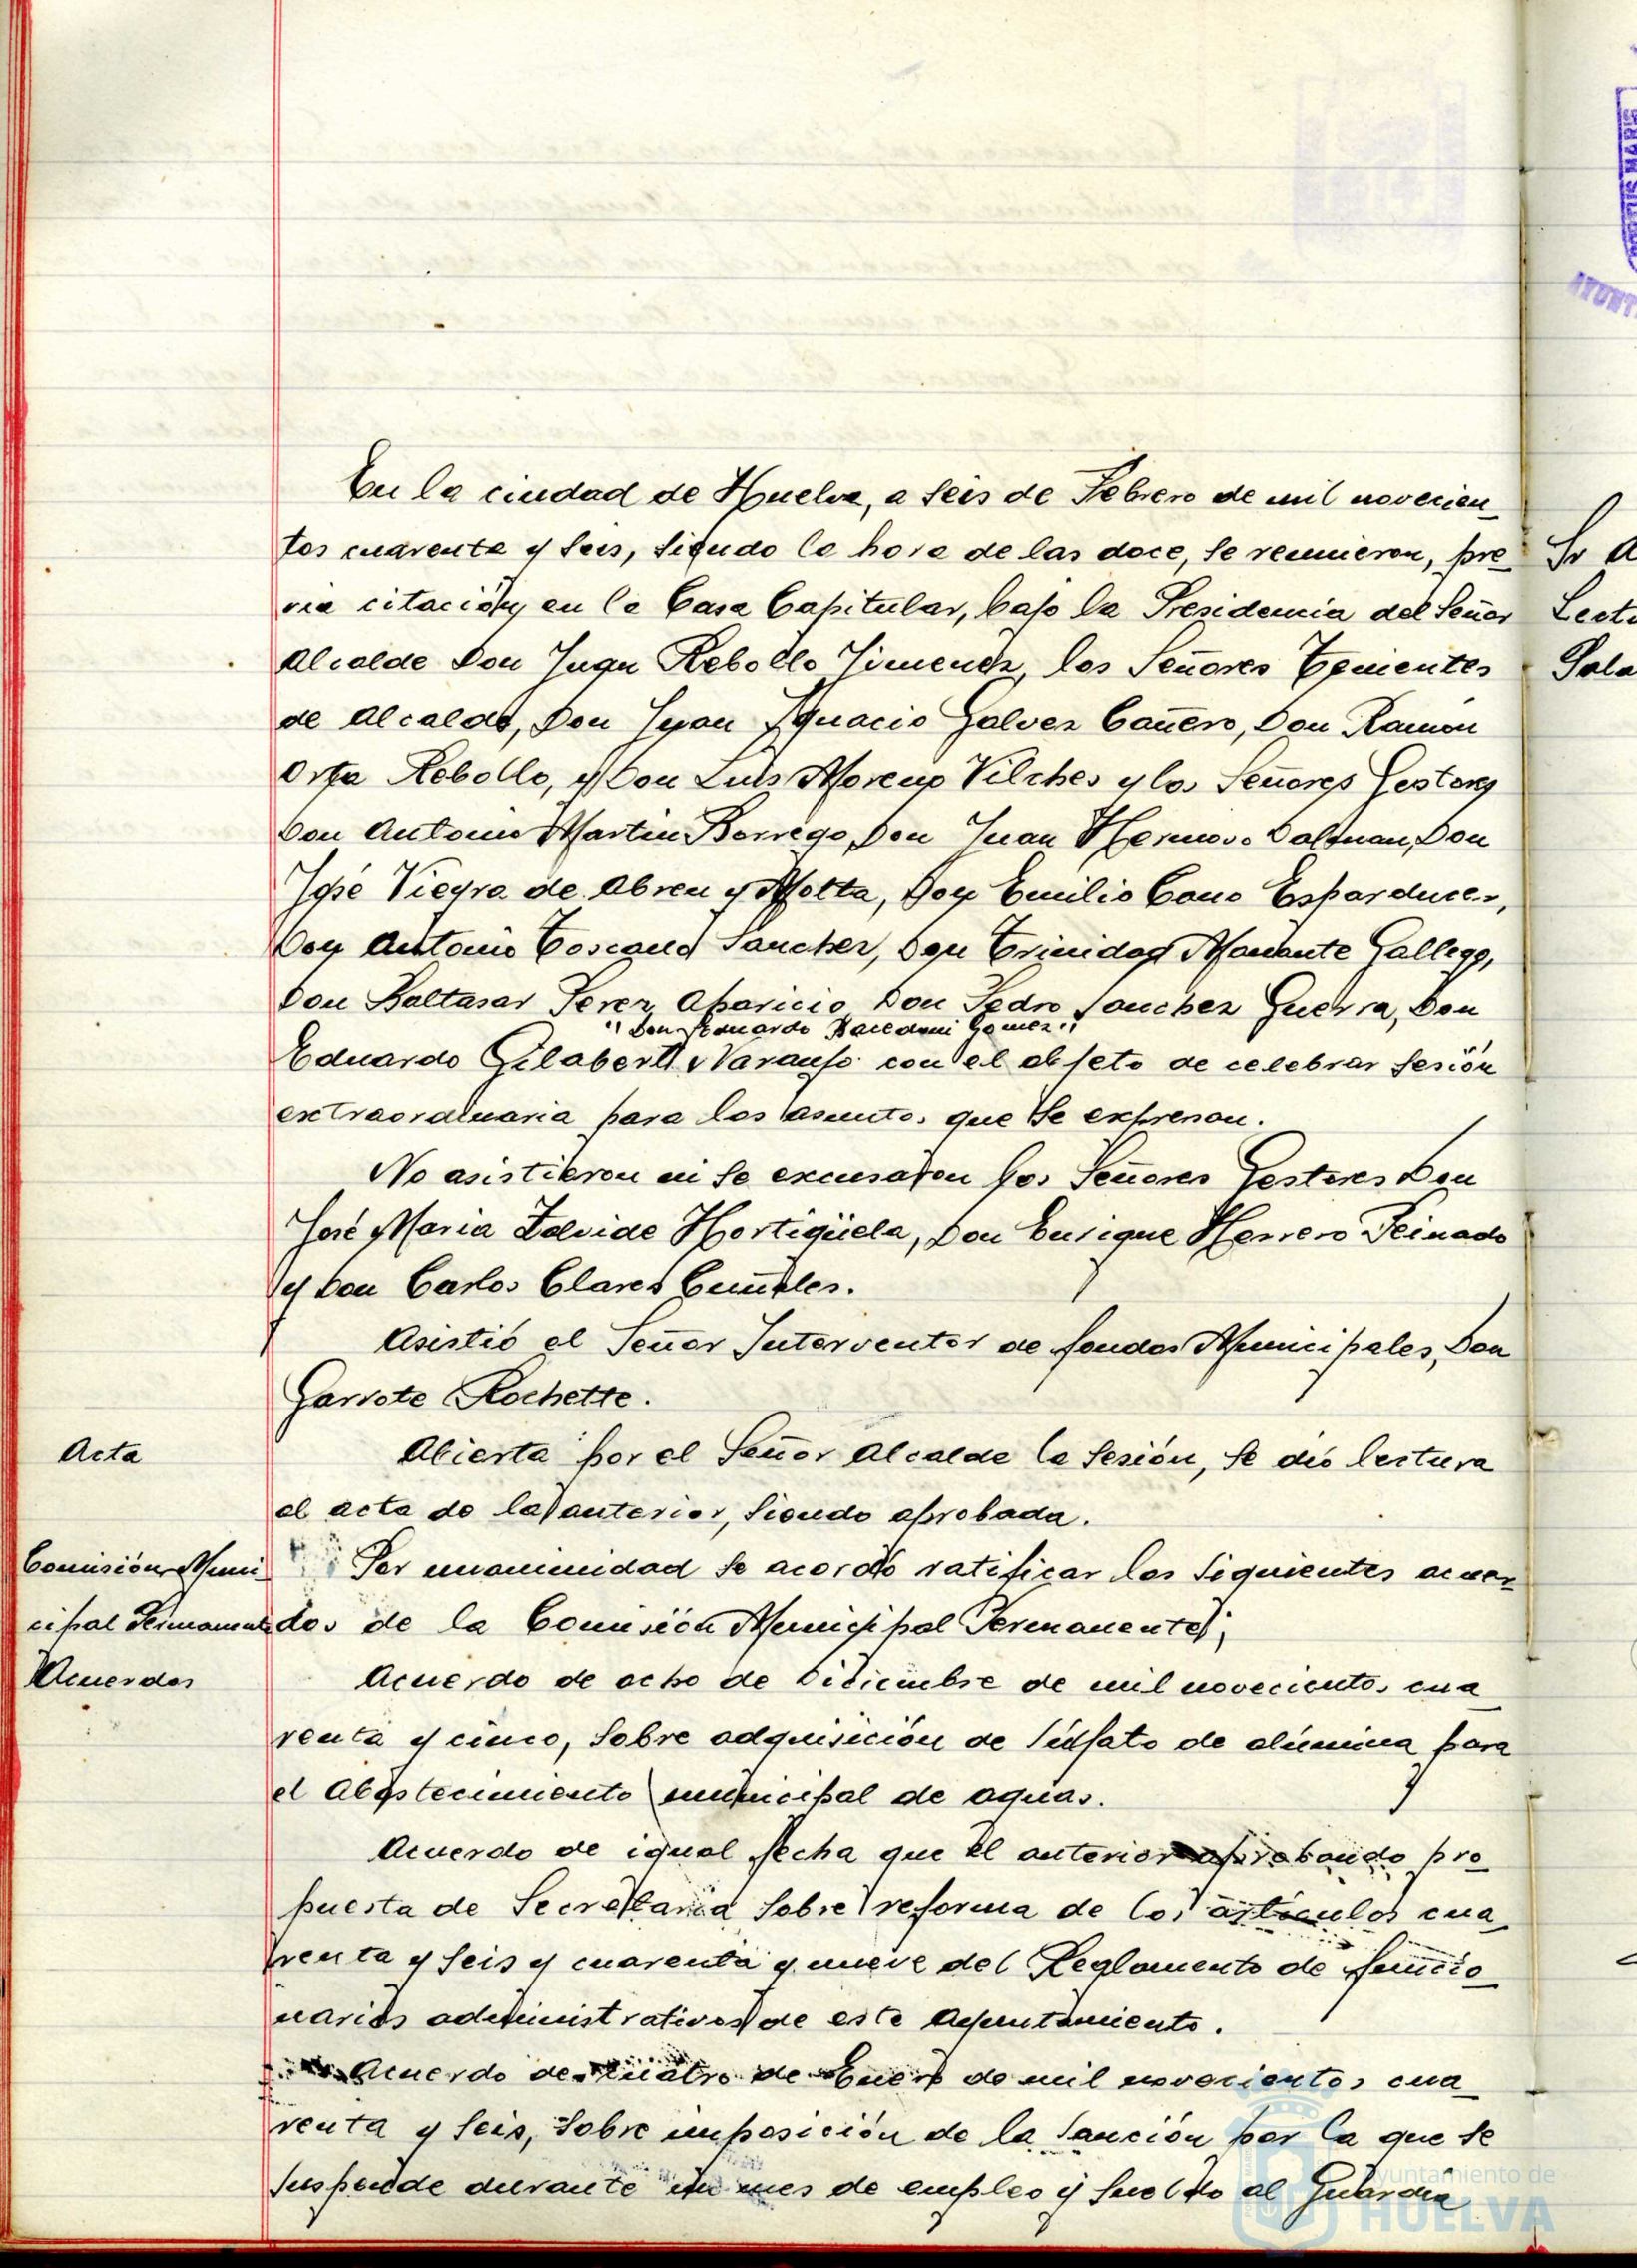 En la ciudad de Huelva, a seis de Febrero de mil novecien_
tos cuarenta y seis, siendo la hora de las doce, se reunieron, pre_
via citación, en la Casa Capitular, bajo la Presidencia del Señor
Alcalde Don Juan Rebollo Jimenez, los Señores Tenientes
de Alcalde, Don Juan Ignacio Galvez Cañero, Don Ramón
Orta Rebollo, y Don Luis Moreno Vilches y los Señores Gestores
Don Antonio Martin Borrego, Don Juan Hermoso Dalman, Don
José Vieyra de Abreu y Motta, Don Emilio Cano Esparducer,
Don Antonio Toscano Sanchez, Don Trinidad Gallego,
Don Baltasar Perez Aparicio, Don Pedro Sanchez Guerra, Don
"Don Eduardo Gomez"
Eduardo Gilabert Naranjo con el objeto de celebrar sesión
extraordinaria para los asuntos que se expresan.
No asistieron ni se excusaron los Señores Gestores Don
José Maria Zalvide Hortigüela, Don Enrique Herrero Peinado
y Don Carlos Clares
Asistió el Señor Interventor de fondos Municipales, Don
Garrote Rochette.
Acta
Abierta por el Señor Alcalde la sesión, se dió lectura
al acta de la anterior, siendo aprobada.
Comisión Muni_
cipal Permanente
Acuerdos
Por unanimidad se acordó ratificar los siguientes acuer_
dos de la Comisión Municipal Permanente;
Acuerdo de ocho de Diciembre de mil novecientos cua_
renta y cinco, sobre adquisición de súlfato de alúmina para
el Abastecimiento municipal de aguas.
Acuerdo de igual fecha que el anterior aprobando pro_
puesta de Secretaria sobre reforma de los artículos cua_
renta y seis y cuarenta y nueve del Reglamento de funcio_
narios administrativos de este Ayuntamiento.
Acuerdo de cuatro de Enero de mil novecientos cua_
renta y seis, sobre imposición de la sanción por la que se
suspende durante un mes de empleo y sueldo al Guardia
Sr A
Ayuntamiento de
HUELVA